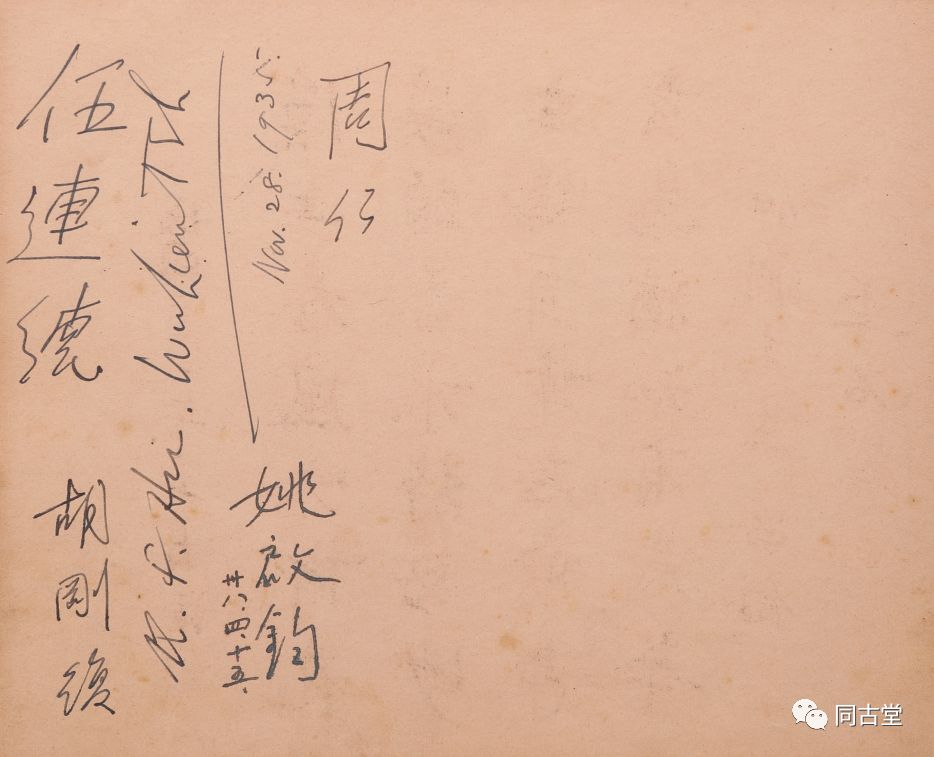 周仁
Nov. 28. 1935.
姚啟鈞
廿八.四.十五.
Wu Lien Teh
伍連德
胡剛復
同古堂